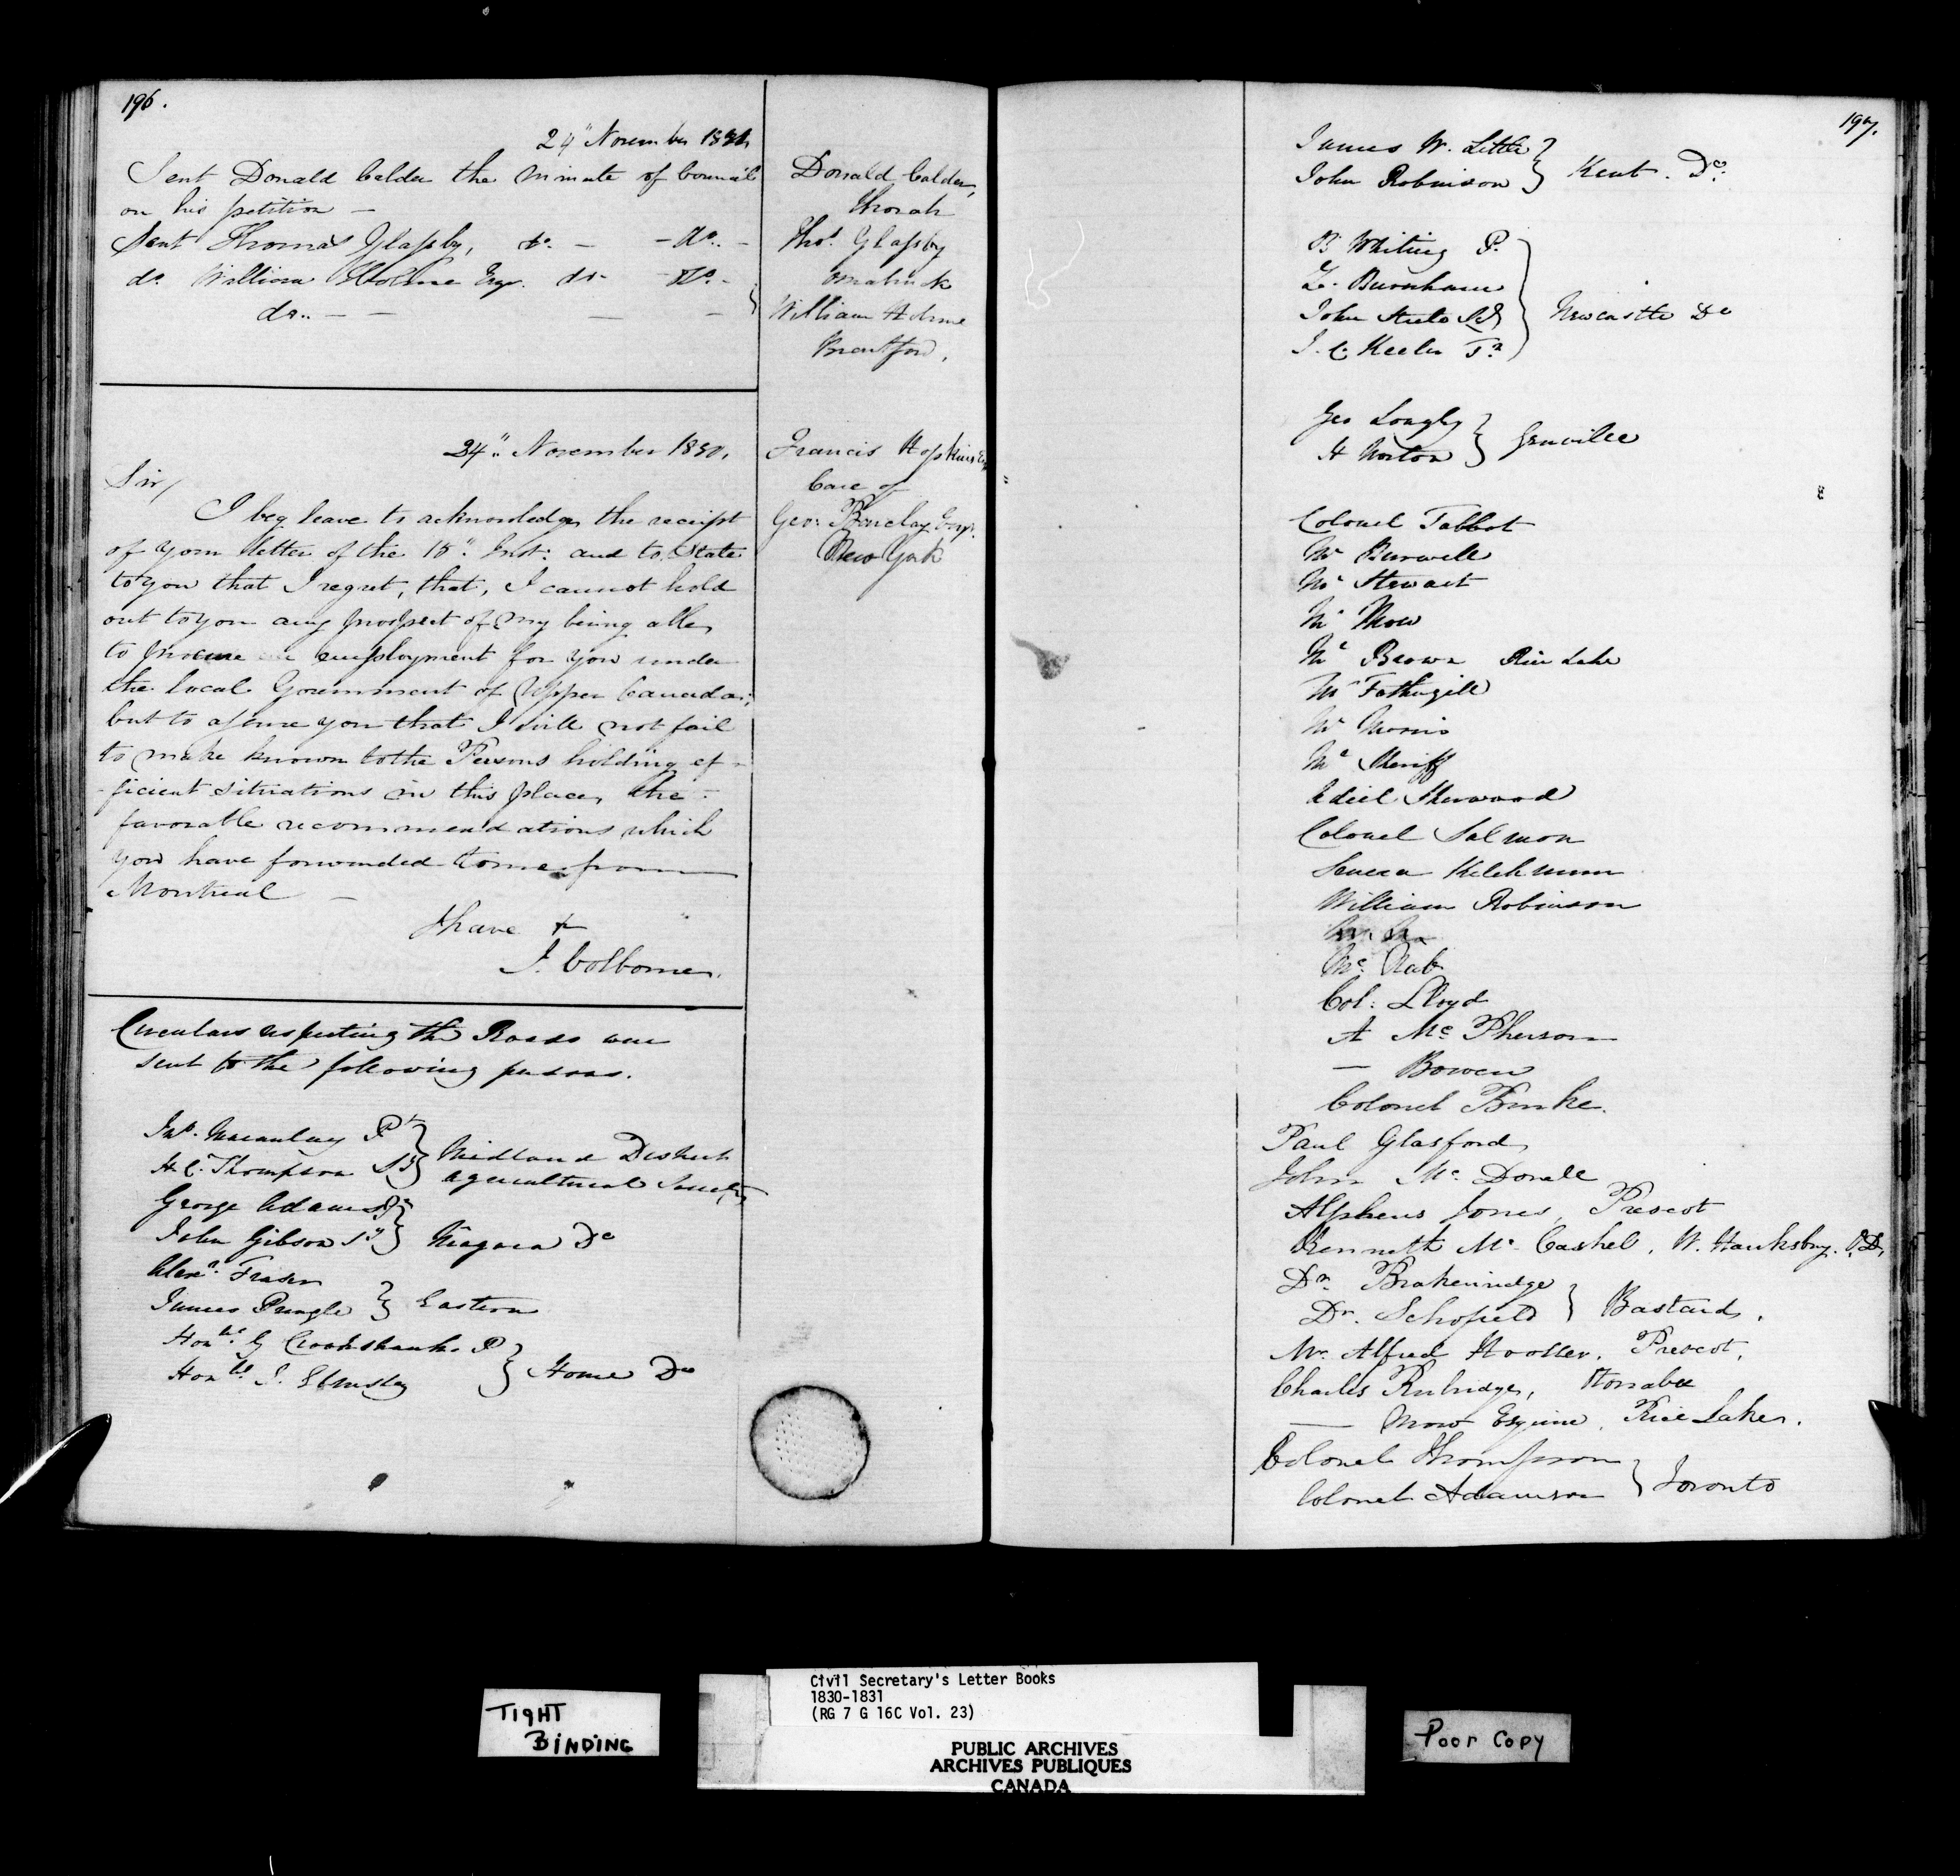 196.
24" November 1830
Sent Donald Calder the Minute of Council
on his petition —
Sent Thomas Glassby, do. — — Do. —
do. William Holme Esqr. do — Do. —
do.. — — — —
Donald Calder,
Thorah
Thos. Glassby
William Holme
Brantford.
24" November 1830.
Francis Hopkins Esq
Care of
Geo: Barclay Esqr.
New York
Sir/
I beg leave to acknowledge the receipt
of your letter of the 15" Inst: and to state
to you that I regret, that, I cannot hold
out to you any prospect of my being able
to procure employment for you under
the local Government of Upper Canada;
but to assure you that I will not fail
to make known to the Persons holding ef-
-ficient situations in this place, the
favorable recommendations which
you have forwarded to me from
Montreal —
I have &
J. Colborne.
Circulars respecting the Roads were
sent to the following persons.
Jno. Macaulay Pt
H. C. Thompson Sy
Midland District
agricultural Society
George Adams P
John Gibson Sy
Niagara Do
Alexr. Fraser
James Pringle
Eastern
Honble. G Crookshank P
Honble J. Elmsley
Home Do
197.
James W. Little
John Robinson
Kent. Do.
B Whiting P.
Z. Burnham
John Steele Sy
J. C. Keeler Tr
Newcastle Do
Geo Longly
H Norton
Grenville
Colonel Talbot
Mr Burwell
Mr Stewart
Mr Mow
Mr Brown Rice Lake
Mr Fothergill
Mr Morris
Mr Sheriff
Adiel Sherwood
Colonel Salmon
Seneca Ketchum
William Robinson
Mc. Nab
Col: Lloyd
A Mc Pherson
— Bowen
Colonel Burke.
Paul Glasford
John Mc Donell
Alpheus Jones, Prescot
Kenneth Mc Caskel, W. Hawksbry. O.D,
Dr. Brakenridge
Dr. Schofield
Bastard.
Mr. Alfred Hooker. Prescot.
Charles Rubidge, Otonabee
— Mow Esquire, Rice Lake.
Colonel Thompson
Colonel Adamson
Toronto
TIGHT
BINDING
Civil Secretary's Letter Books
1830-1831
(RG 7 G 16C Vol. 23)
PUBLIC ARCHIVES
ARCHIVES PUBLIQUES
CANADA
Poor Copy